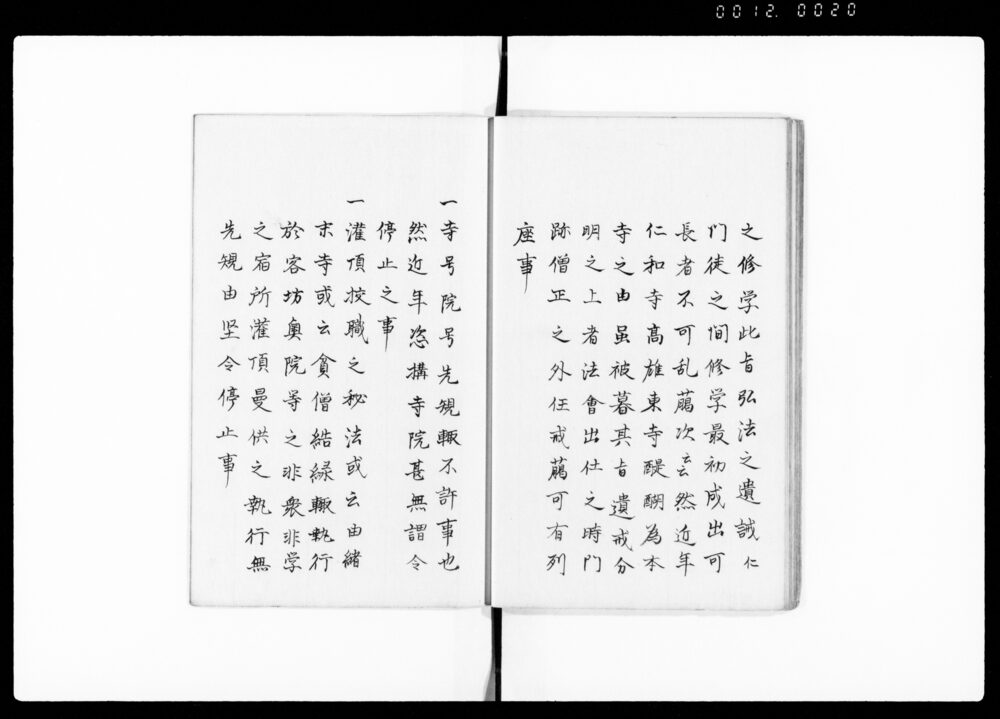 0012. 0020
之修学此旨弘法之遺誡仁
門徒之間修学最初成出可
長者不可乱﨟次云云然近年
仁和寺高雄東寺醍醐為本
寺之由虽被暮其旨遺戒分
明之上者法會出仕之時門
跡僧正之外任戒﨟可有列
座事
一寺号院号先規輙不許事也
然近年恣構寺院甚無謂令
停止之事
一灌頂授職之秘法或云由緒
末寺或云貪僧結縁輙執行
於客坊奥院等之非衆非学
之宿所灌頂曼供之執行無
先規由坚令停止事